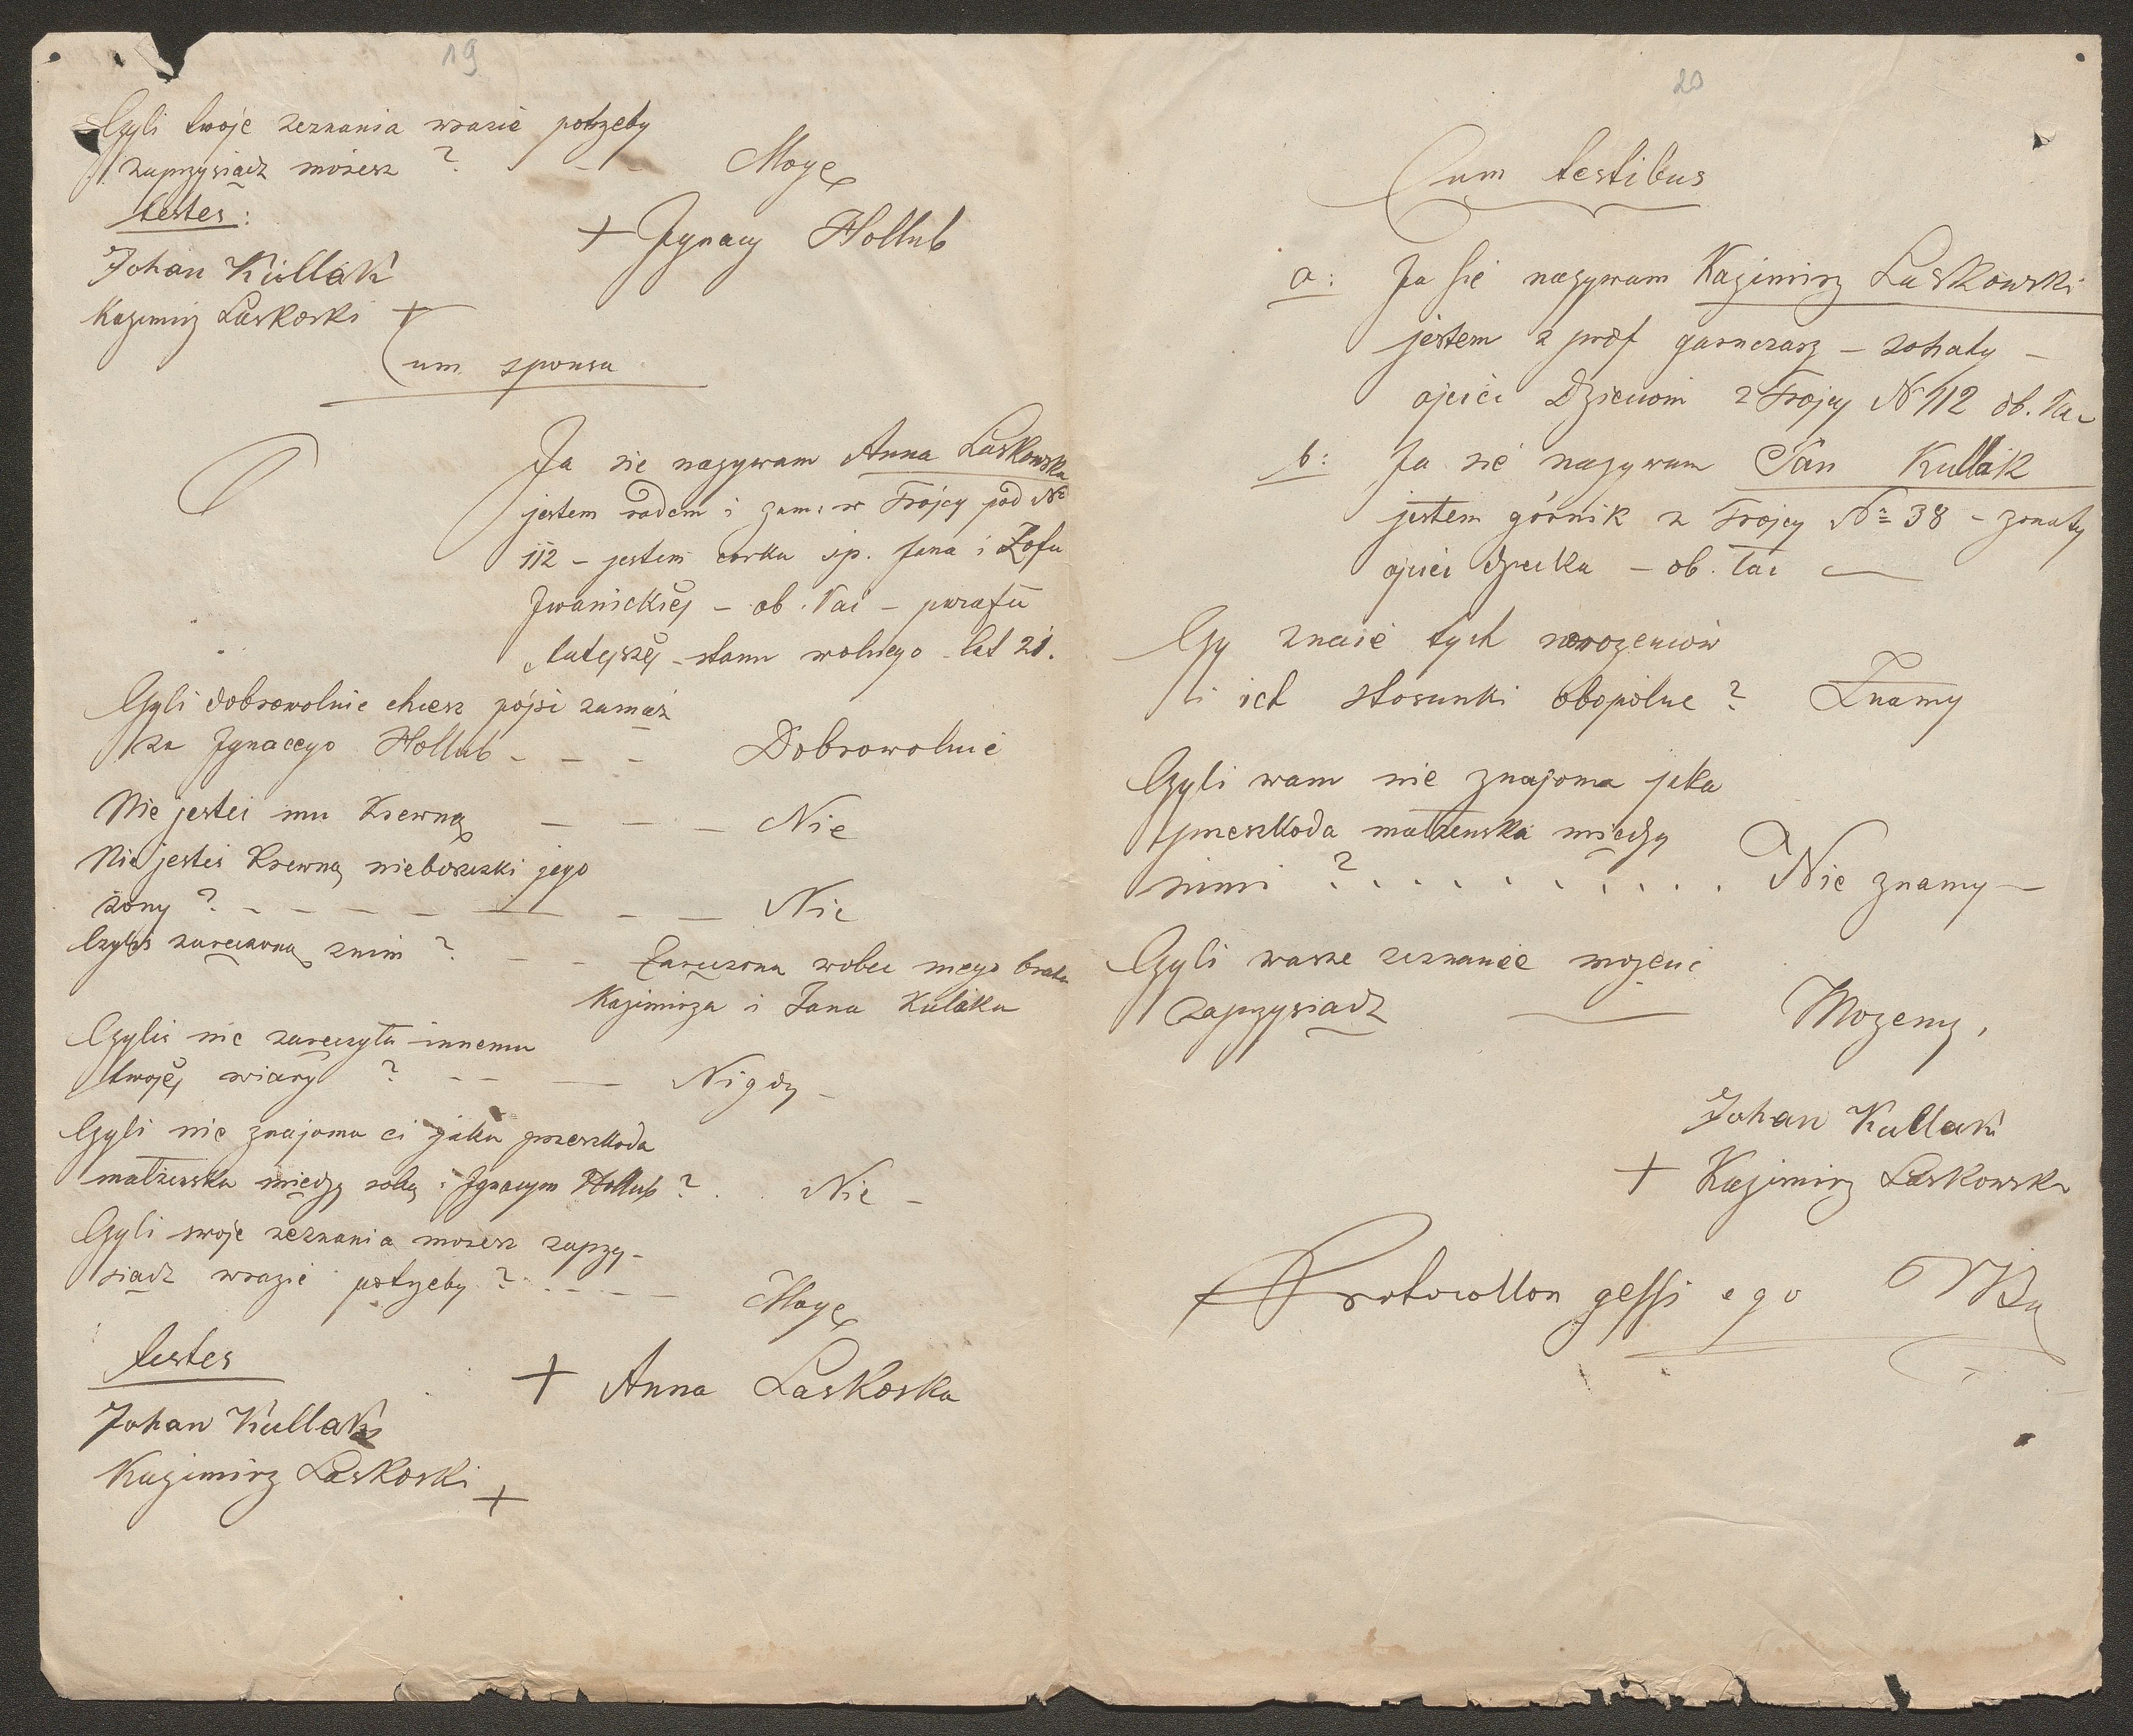 19
Czyli twoje zeznania wrazie potrzeby
zaprzysiądz możesz ? - - Mogę
testes:
+ Jgnacy Hollub
Johan Kullak
Kazimirz Laskoski +
Cum sponsa
Ja sie nazywam Anna Laskowska
jestem rodem i zam: w Trojcy pod No
112 - jestem corka sp. Jana i Zofii
Jwanickiéj - ob. lat - parafii
tutejszéj - stanu wolnego - lat 21.
Czyli dobrowolnie chcesz pójść zamąż
za Jgnacego Hollub - - - Dobrowolnie
Nie jesteś mu Krewną - - - Nie
Nie jesteś Krewną nieboszczki jego
żony ? - - - - - - - Nie
Czyliś zaręczoną znim ? - - Zaręczona wobec mego brata
Kazimirza i Jana Kulaka
Czyliś nie zaręczyła innemu
twojéj wiary ? - - - Nigdy -
Czyli nie znajoma ci jaka przeszkoda
małżenska między sobą i Jgnacym Hollub ? . . Nie -
Czyli swoje zeznania możesz zaprzy-
siądz wrazie potrzeby ? - - - - Mogę
testes
+ Anna Laskoska
Johan Kullak
Kazimirz Laskoski +
20
Cum testibus
a: Ja się nazywam Kazimirz Laskowski
jestem z prof garnczarz - żonaty -
ojciec Dzieciom z Trojcy No 112 ob. lat
b: Ja się nazywam Jan Kullak
jestem górnik z Trojcy No 38 - żonaty
ojciec dziecka - ob. lat -
Czy znacie tych nowożencow
i ich stosunki obopólne ? Znamy
Czyli wam nie znajoma jaka
przeszkoda małżenska między
nimi ? . . . . . . . . Nie znamy -
Czyli wasze zeznanie możecie
zaprzysiądz - Mozemy,
Johan Kullak
+ Kazimirz Laskowski
Protocollon gessi ego